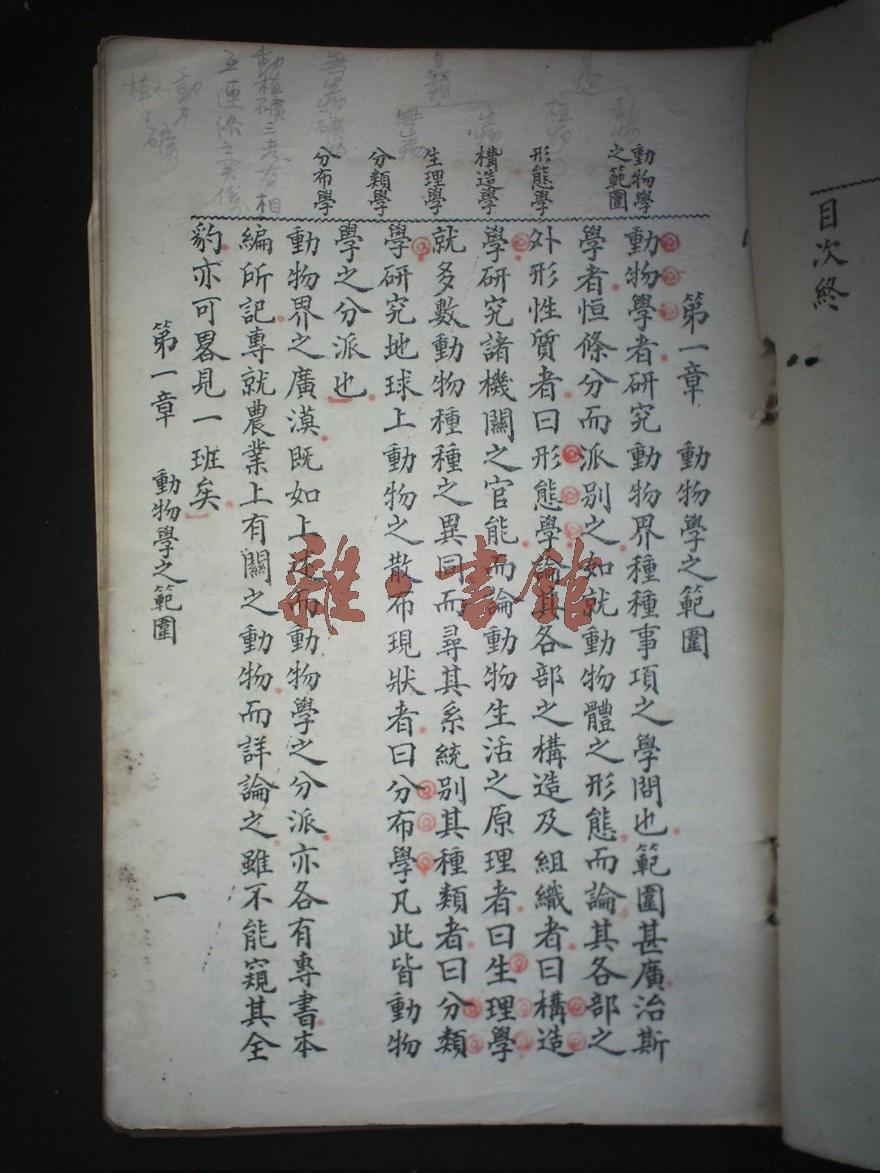 目次終
動物學
之範圍
形態學
構造學
生理學
分類學
分布學
動植礦三者有相
互連滌之
第一章 動物學之範圍
動物學者研究動物界種種事項之學問也範圍甚廣治斯
學者恒條分而派別之如就動物體之形態而論其各部之
外形性質者曰形態學論其各部之構造及組織者曰構造
學研究諸機關之官能而論動物生活之原理者曰生理學
就多數動物種種之異同而尋其系統別其種類者曰分類
學研究地球上動物之散布現狀者曰分布學凡此皆動物
學之分派也
動物界之廣漠既如上述而動物學之分派亦各有專書本
編所記專就農業上有關之動物而詳論之雖不能窺其全
豹亦可畧見一班矣
第一章 動物學之範圍
一
雜·書館